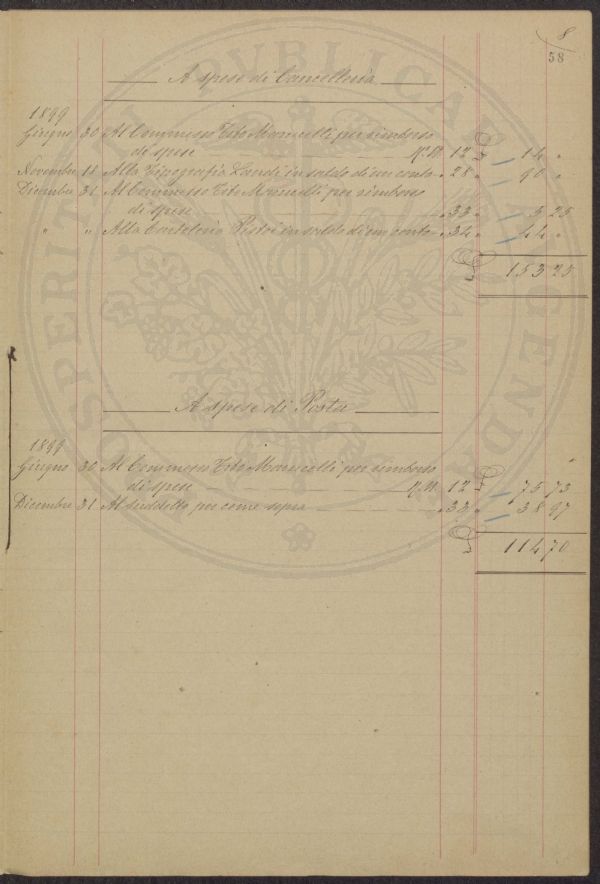 8
58
A spese di Cancelleria
1899
Giugno 30 Al Commesso Tito Marucelli per rimborso
di spese N. M. 12 " 14 "
Novembre 11 Alla Tipografia Landi in saldo di un conto " 28 " 90 "
Dicembre 31 Al Commesso Tito Marucelli per rimborso
di spese " 33 " 5 25
" " Alla Cartoleria Pistoi in saldo di un conto " 34 " 44 "
153 25
A spese di Posta
1899
Giugno 30 Al Commesso Tito Marucelli per rimborso
di spese N. M. 12 " 75 73
Dicembre 31 Al suddetto per come sopra " 33 " 38 97
114 70